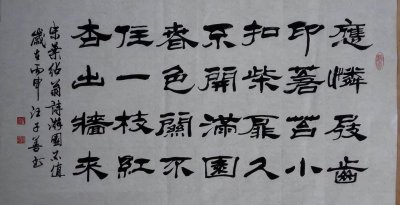 應憐屐齒
印蒼苔小
扣柴扉久
不開滿園
春色關不
住一枝紅
杏出牆來
宋葉紹翁詩游園不值
歲在丙申汪子善书